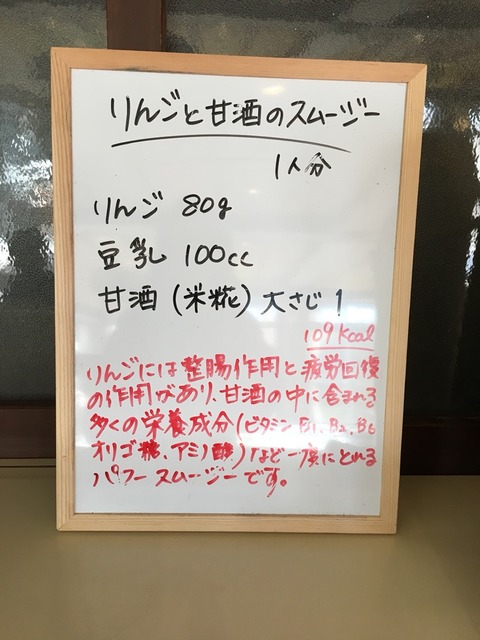 りんごと甘酒のスムージー
1人分
りんご 80g
豆乳 100cc
甘酒(米糀)大さじ1
109Kcal
りんごには整腸作用と疲労回復
の作用があり、甘酒の中に含まれる
多くの栄養成分(ビタミンB1、B2、B6
オリゴ糖、アミノ酸)など一度にとれる
パワースムージーです。